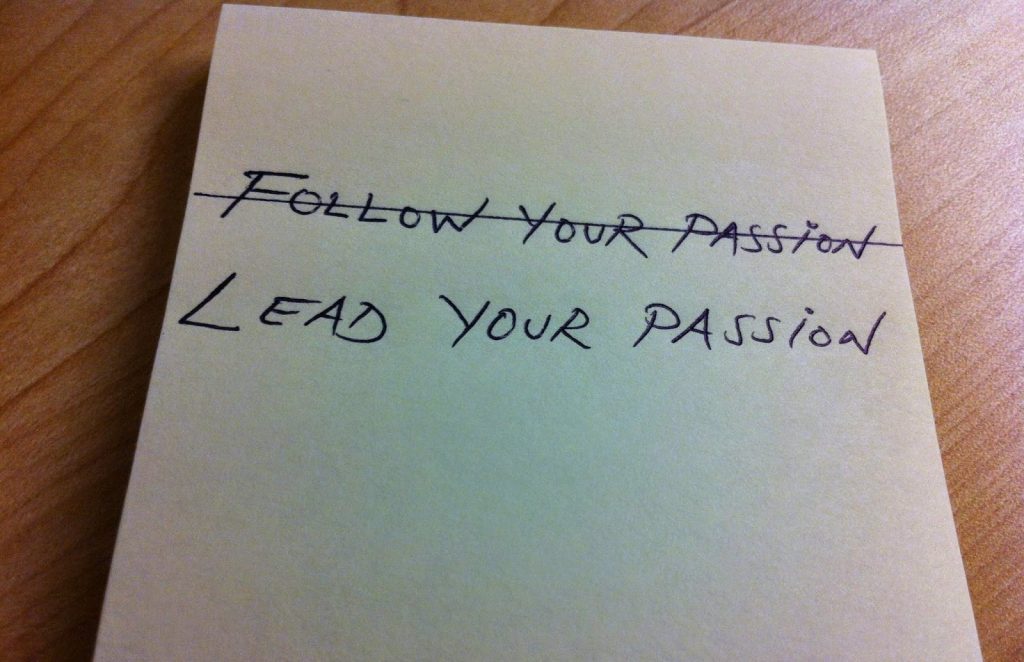 FOLLOW YOUR PASSiON
LEAD YOUR PASSiON